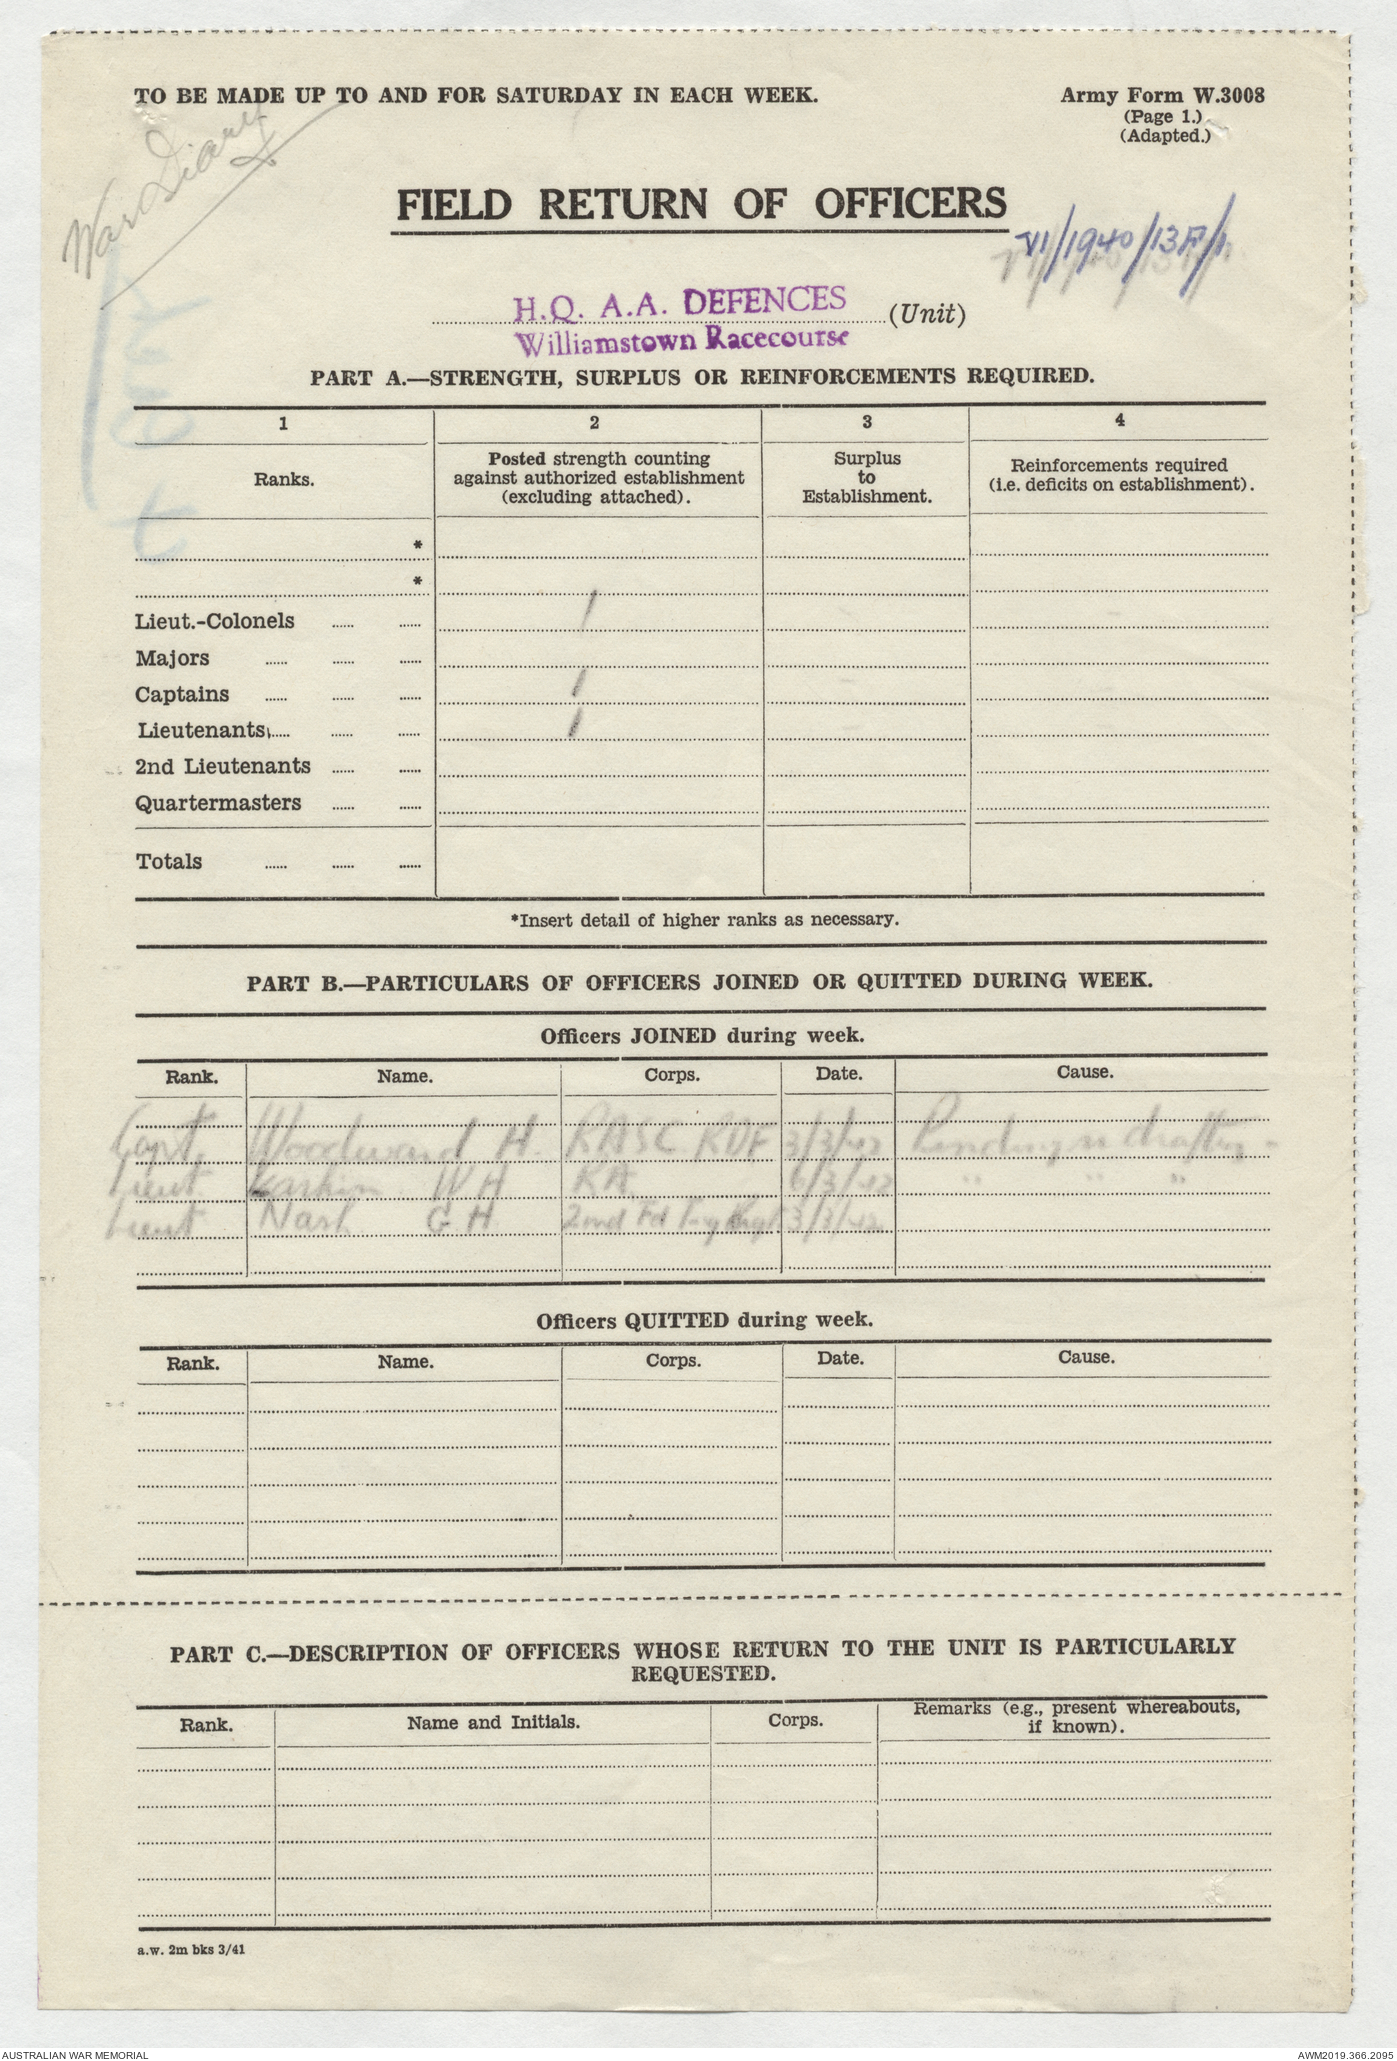 TO BE MADE UP TO AND FOR SATURDAY IN EACH WEEK.
Army Form W.3008
(Page 1.)
(Adapted.)
War Diary
FIELD RETURN OF OFFICERS
VI/1940/13F/1
H.Q. A.A. DEFENCES
(Unit)
Williamstown Racecourse
PART A.—STRENGTH, SURPLUS OR REINFORCEMENTS REQUIRED.
1 2 3 4
Ranks. Posted strength counting against authorized establishment (excluding attached). Surplus to Establishment. Reinforcements required (i.e. deficits on establishment).
*
*
Lieut.-Colonels ...... ...... 1
Majors ...... ...... ......
Captains ...... ...... ...... 1
Lieutenants ...... ...... ...... 1
2nd Lieutenants ...... ......
Quartermasters ...... ......
Totals ...... ...... ......
*Insert detail of higher ranks as necessary.
PART B.—PARTICULARS OF OFFICERS JOINED OR QUITTED DURING WEEK.
Officers JOINED during week.
Rank. Name. Corps. Date. Cause.
Capt. Woodward H. RASC 3/3/42 Pending drafting
Lieut Larkin W H RA 6/3/42 " " "
Lieut Nash G H 2nd Fd Regt 3/3/42
Officers QUITTED during week.
Rank. Name. Corps. Date. Cause.
PART C.—DESCRIPTION OF OFFICERS WHOSE RETURN TO THE UNIT IS PARTICULARLY
REQUESTED.
Rank. Name and Initials. Corps. Remarks (e.g., present whereabouts, if known).
a.w. 2m bks 3/41
AUSTRALIAN WAR MEMORIAL
AWM2019.366.2095